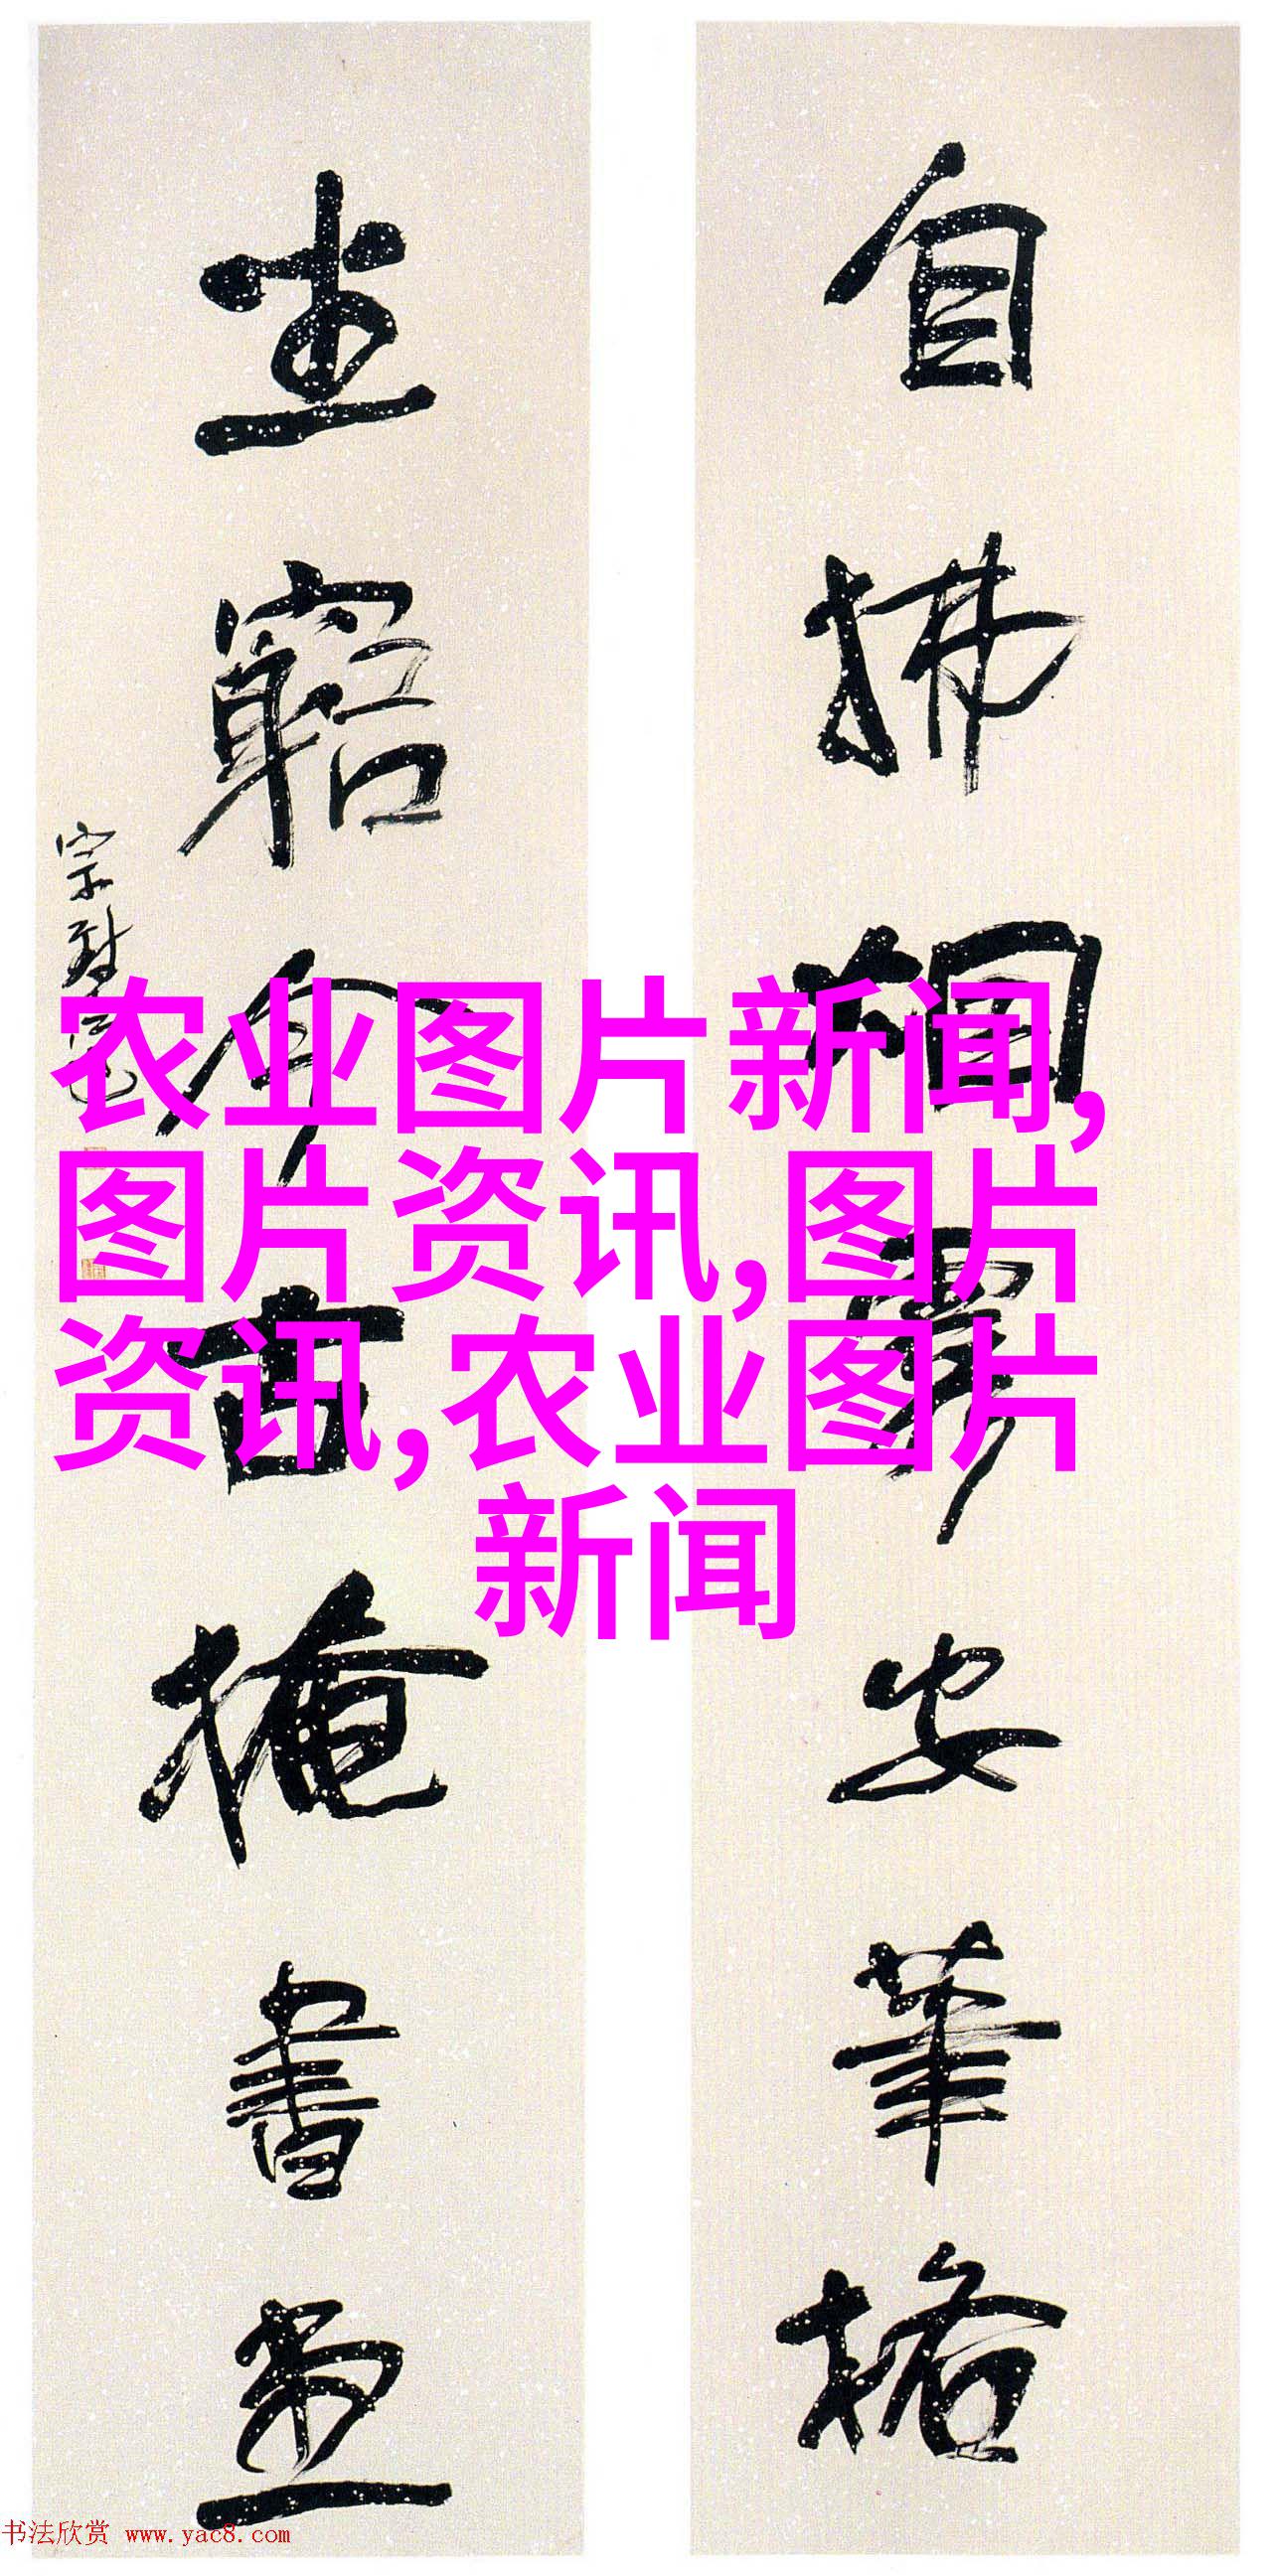 自拂烟霞安筆格
坐窮今古掩書堂
农业图片新闻,
图片资讯,图片
资讯,农业图片
新闻
书法欣赏 www.yac8.com